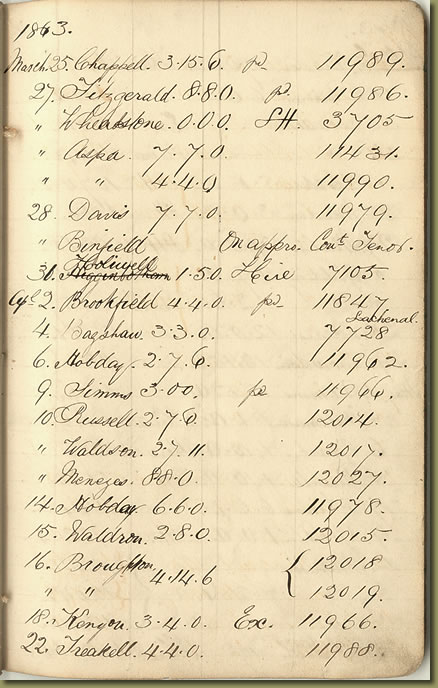 1863.
March 25. Chappell. 3.15.6. pd 11989.
27. Fitzgerald. 8.8.0. pd. 11986.
" Wheatstone. 0.0.0. SH. 3705
" Aspa. 7.7.0. 11431.
" " 4.4.0 11990.
28. Davis 7.7.0. 11979.
" Binfield On appro. Cont Tenor.
Holiwell
31. Higginbotham 1.50. Hire 7105.
Apl 2. Brookfield 4.4.0. pd 11847
Lachenal.
4. Bagshaw. 3.3.0. 7728
6. Hobday. 2.7.6. 11962.
9. Simms 3.00. pd 11966.
10. Russell. 2.7.6. 12014.
" Waldson. 2.7.11. 12017.
" Menezes. 88.0. 12027.
14. Hobday 6.6.0. 11978.
15. Waldron. 2.8.0. 12015.
16. Broughton 4.14.6 { 12018
" " 12019.
18. Kenyon. 3.4.0. Ex. 11966.
22. Treakell. 4.4.0. 11988.